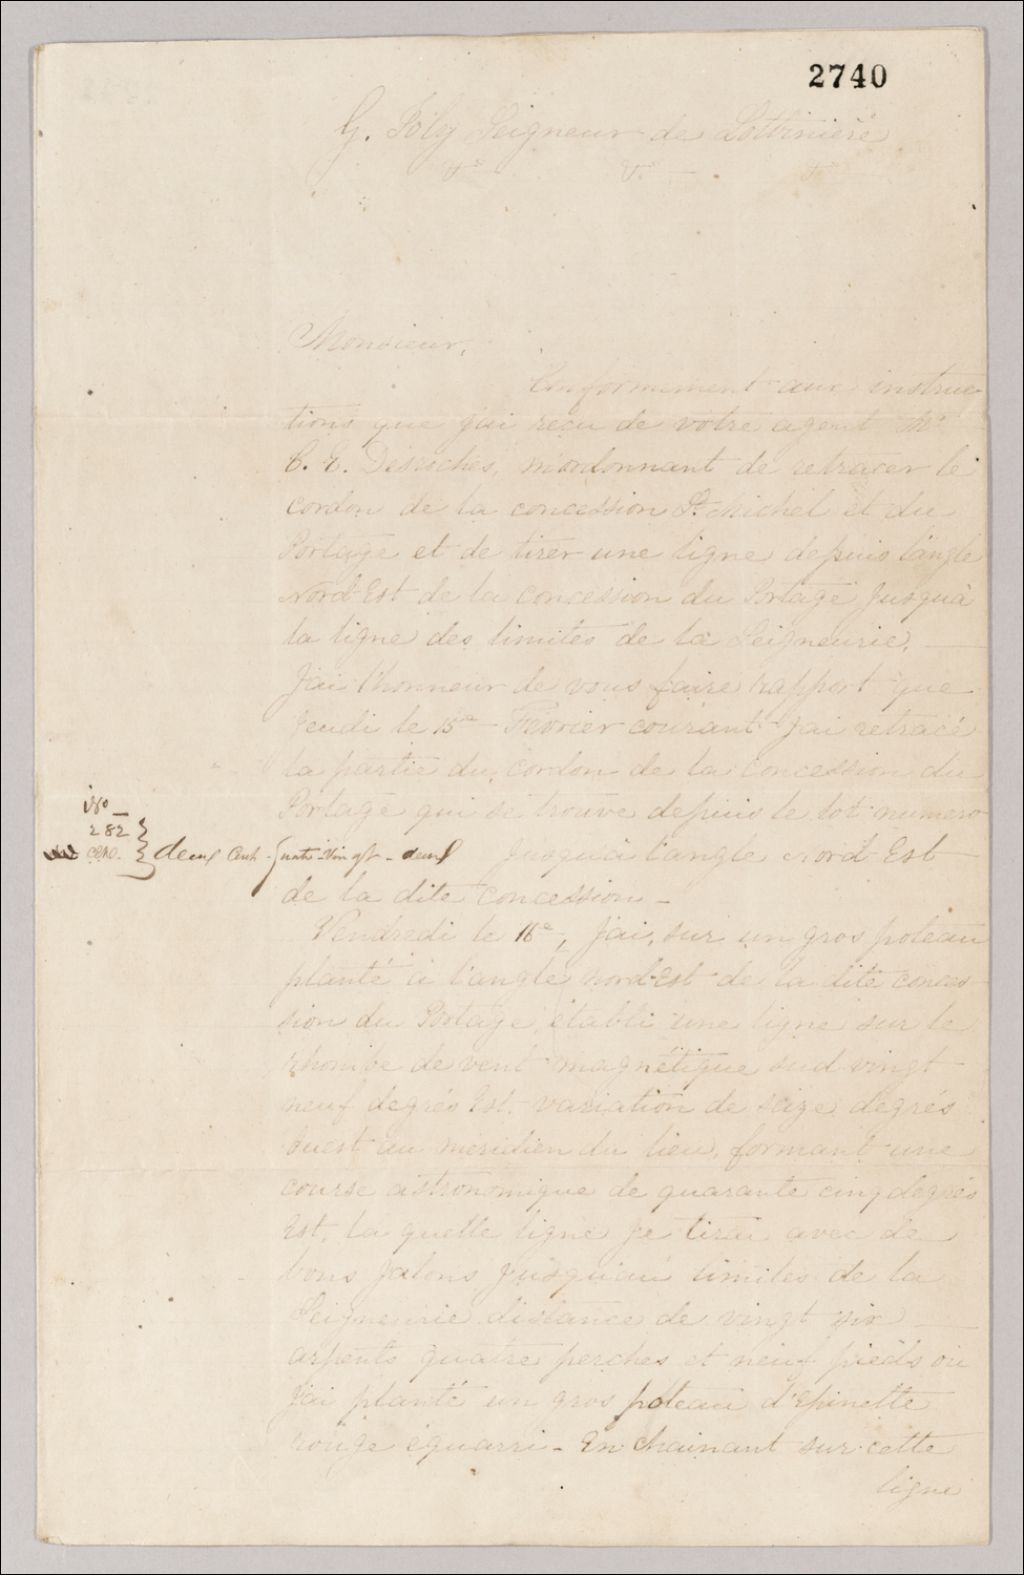 2740
G. Joly Seigneur de Lotbiniere
Monsieur,
Conformement aux instruc-
tions que j'ai reçu de votre agent Mr
C. E. Desroches, m'ordonnant de retracer le
cordon de la concession St Michel et du
Portage et de tirer une ligne depuis l'angle
Nord-Est de la concession du Portage jusqu'à
la ligne des limites de la Seigneurie.
J'ai l'honneur de vous faire rapport que
Jeudi le 15e Fevrier courant j'ai retracé
la partie du cordon de la concession du
Portage qui se trouve depuis le lot numero
No
282
deux Cent-quatre-Vingt-deux jusqu'à l'angle Nord Est
de la dite concession -
Vendredi le 16e, j'ai, sur un gros poteau
planté à l'angle nord-Est de la dite conces-
sion du Portage, établi une ligne sur le
rhombe de vent magnétique sud vingt
neuf degrés Est. variation de seize degrés
Ouest au méridien du lieu, formant une
course astronomique de quarante cinq degrés
Est, la quelle ligne je tirai avec de
bons jalons jusqu'au limites de la
Seigneurie distance de vingt six
arpents quatre perches et neuf pieds où
j'ai planté un gros poteau d'Epinette
rouge équarri - En chainant sur cette
ligne